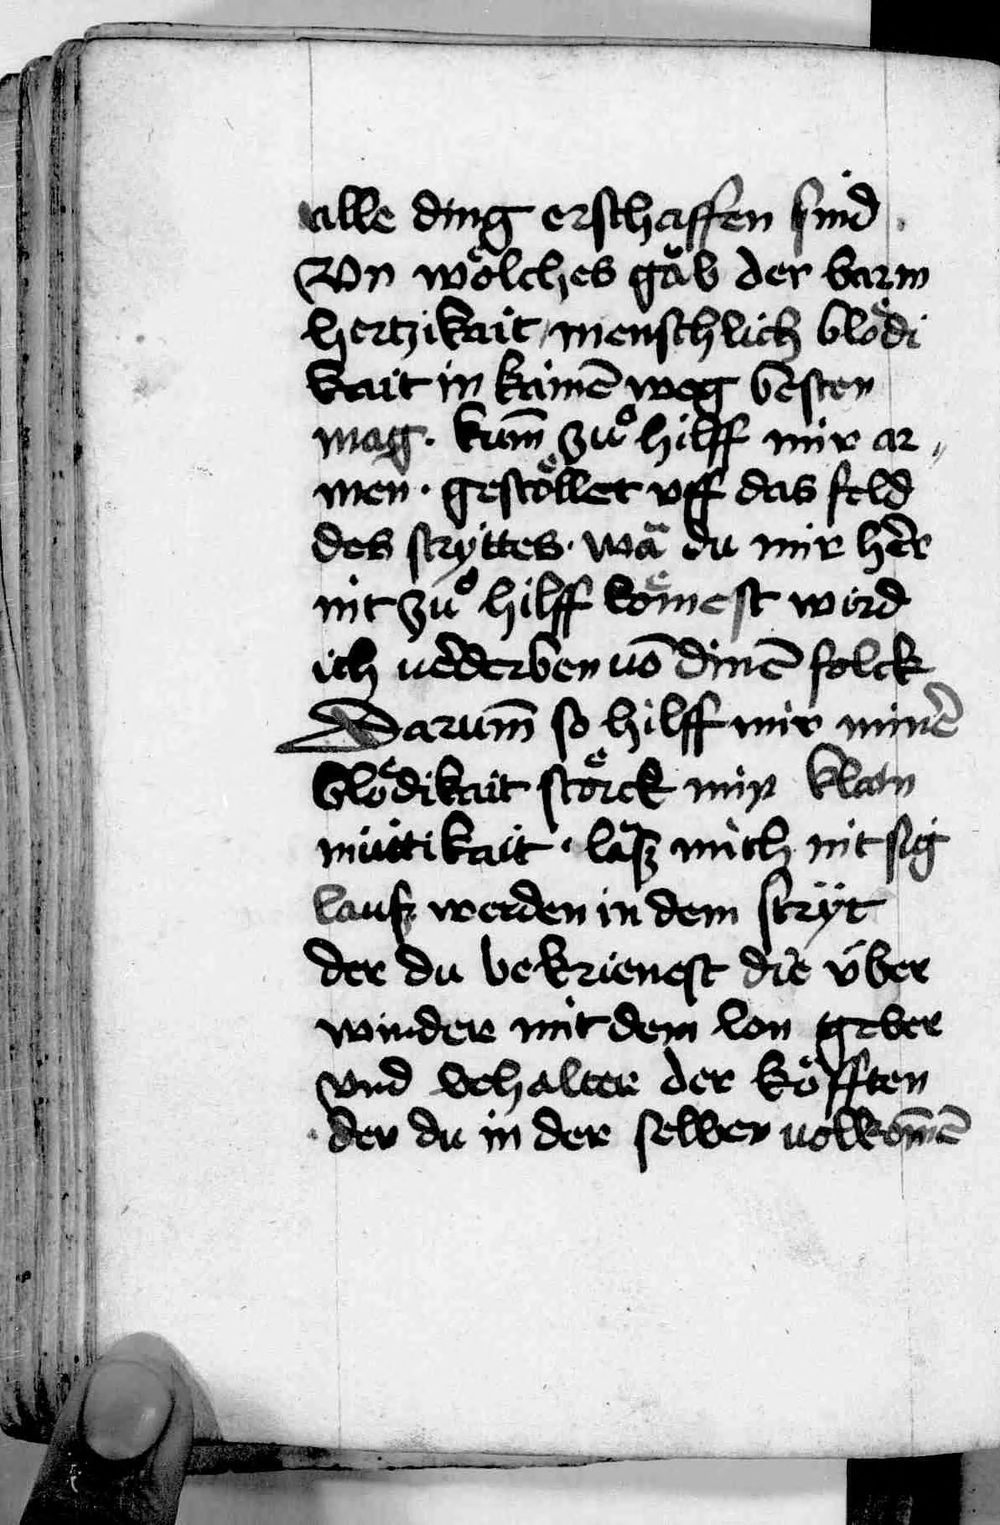 alle ding erschaffen sind .
On woͤlches gaͤb der barm
hertzikait menschlich bloͤdi
kait in kainē weg besten
mag . kum̄ zuͦ hilff mir ar„
men . gestoͤllet vff das feld
des stryttes . wā du mir her̄
nit zuͦ hilff koͤmest wird
ich v̓derben vō dinē folck
Darum̄ so hilff mir minē
bloͤdikait stoͤrck min klain
muͤtikait . läß mich nit sig
lauß werden in dem strÿt
der du bekrienest die v̈ber
winder mit dem lon geber
vnd behalter der koͤfften
der du in der selben volkom̄ē